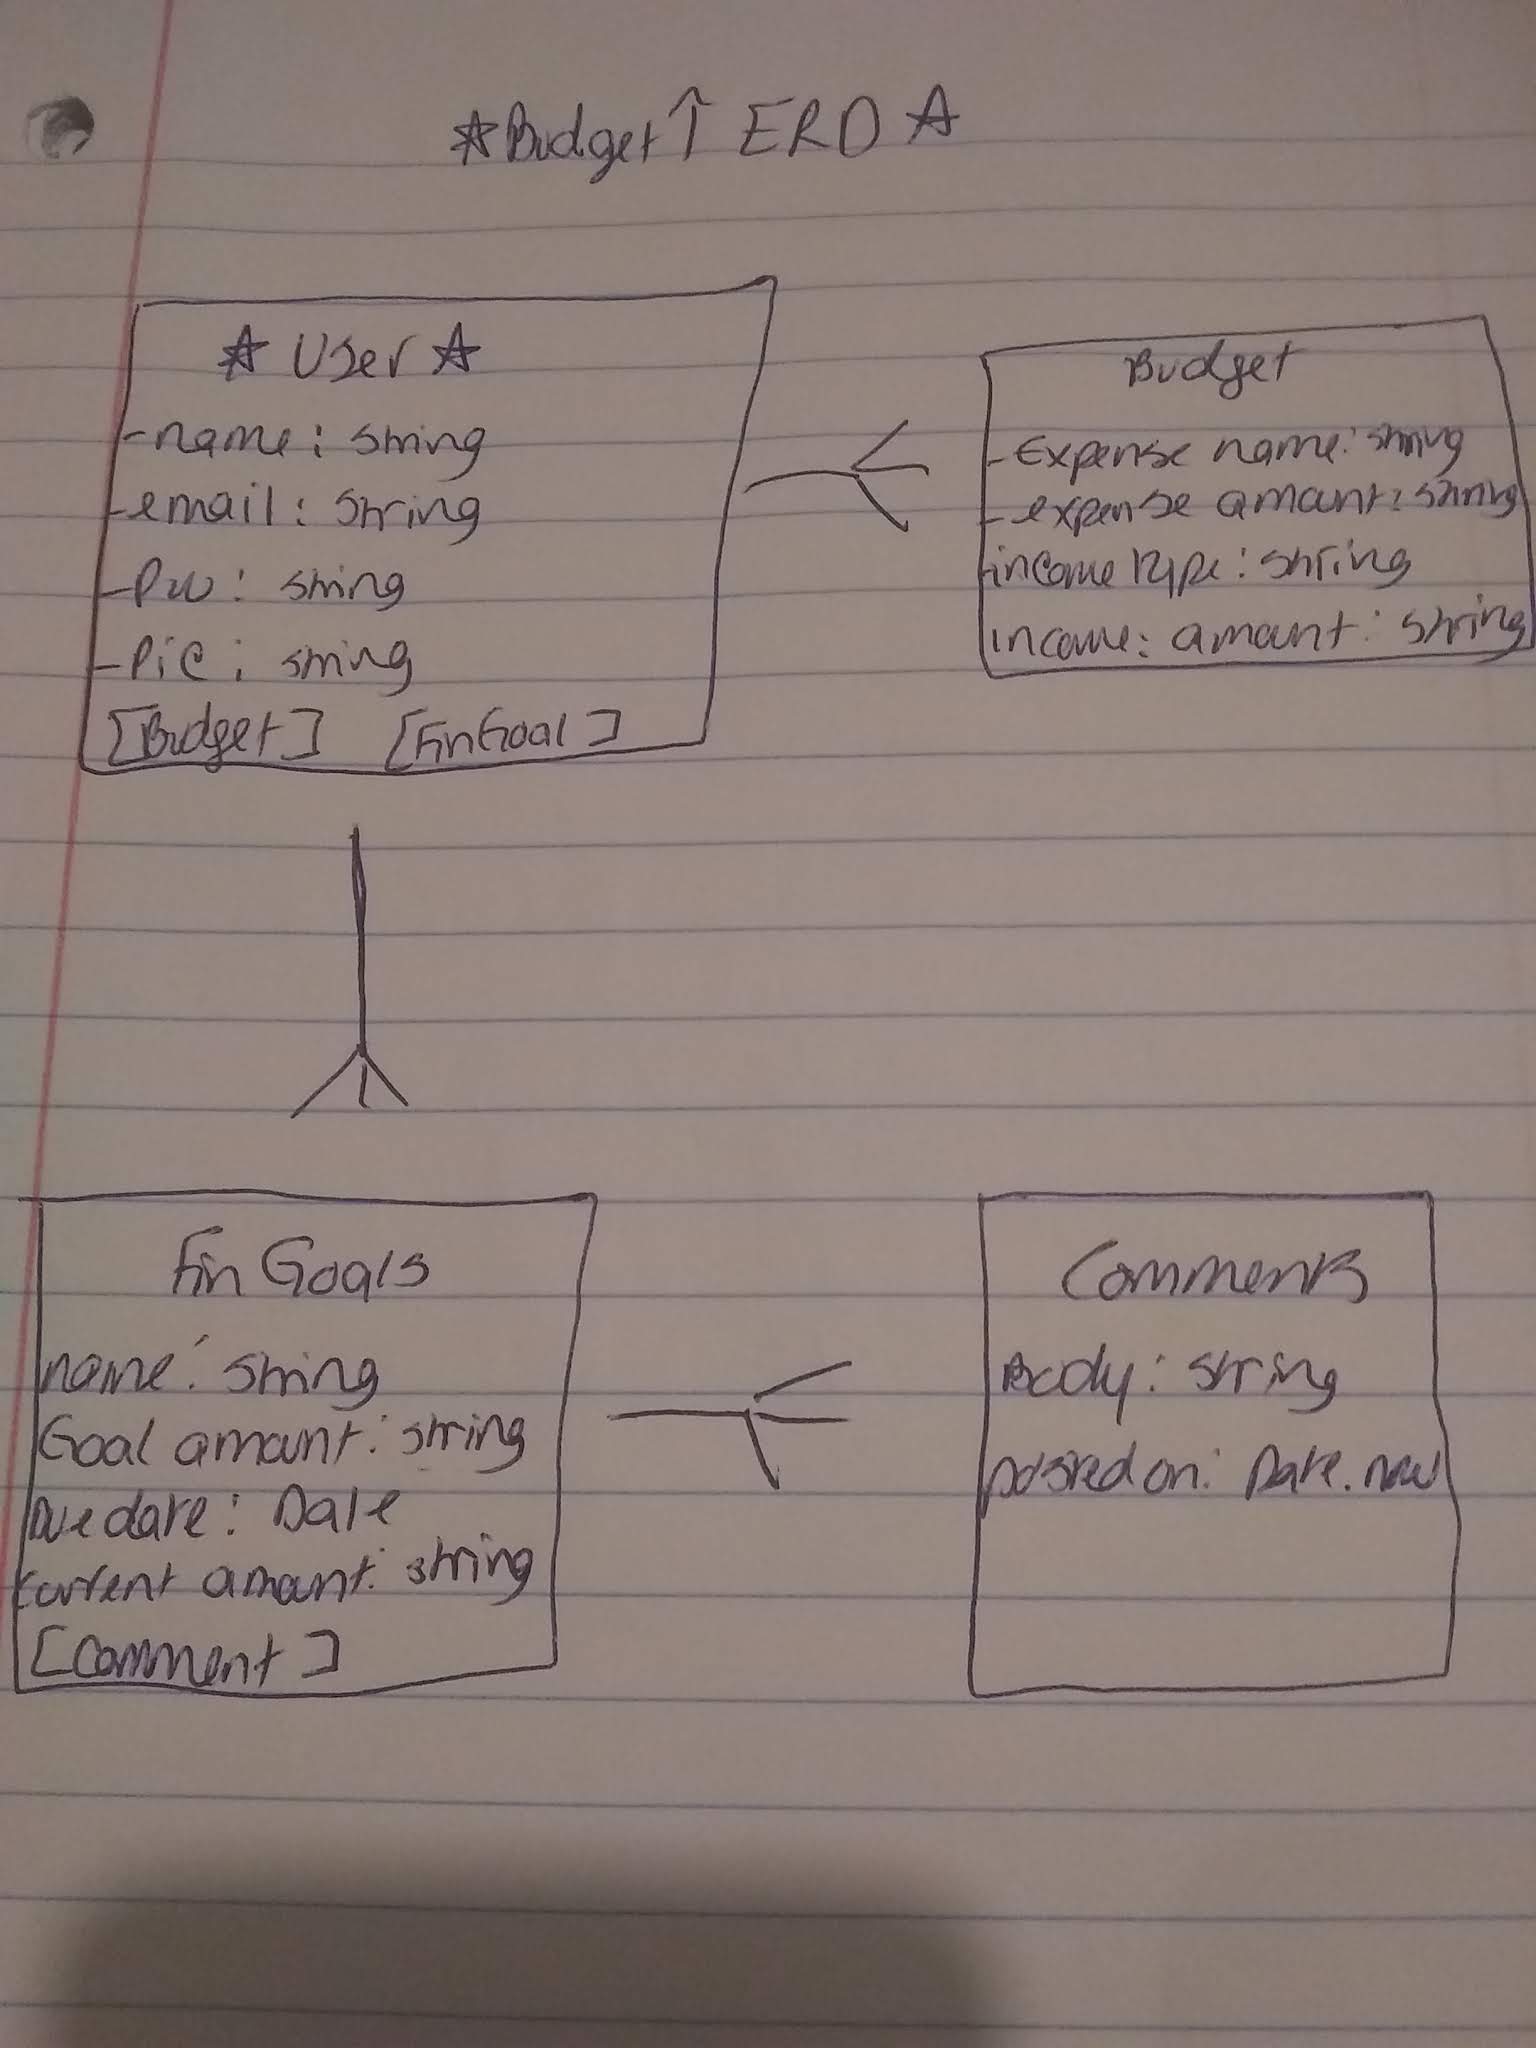 ☆Budget↑ ERD ☆
☆ User ☆
-name: string
-email: string
-PW: string
-Pic: string
[Budget] [FinGoal]
Budget
-Expense name: string
-expense amount: string
income type: string
income: amount: string
Fin Goals
name: string
Goal amount: string
Due date: Date
current amount: string
[Comment]
Comments
Body: string
posted on: Date.now